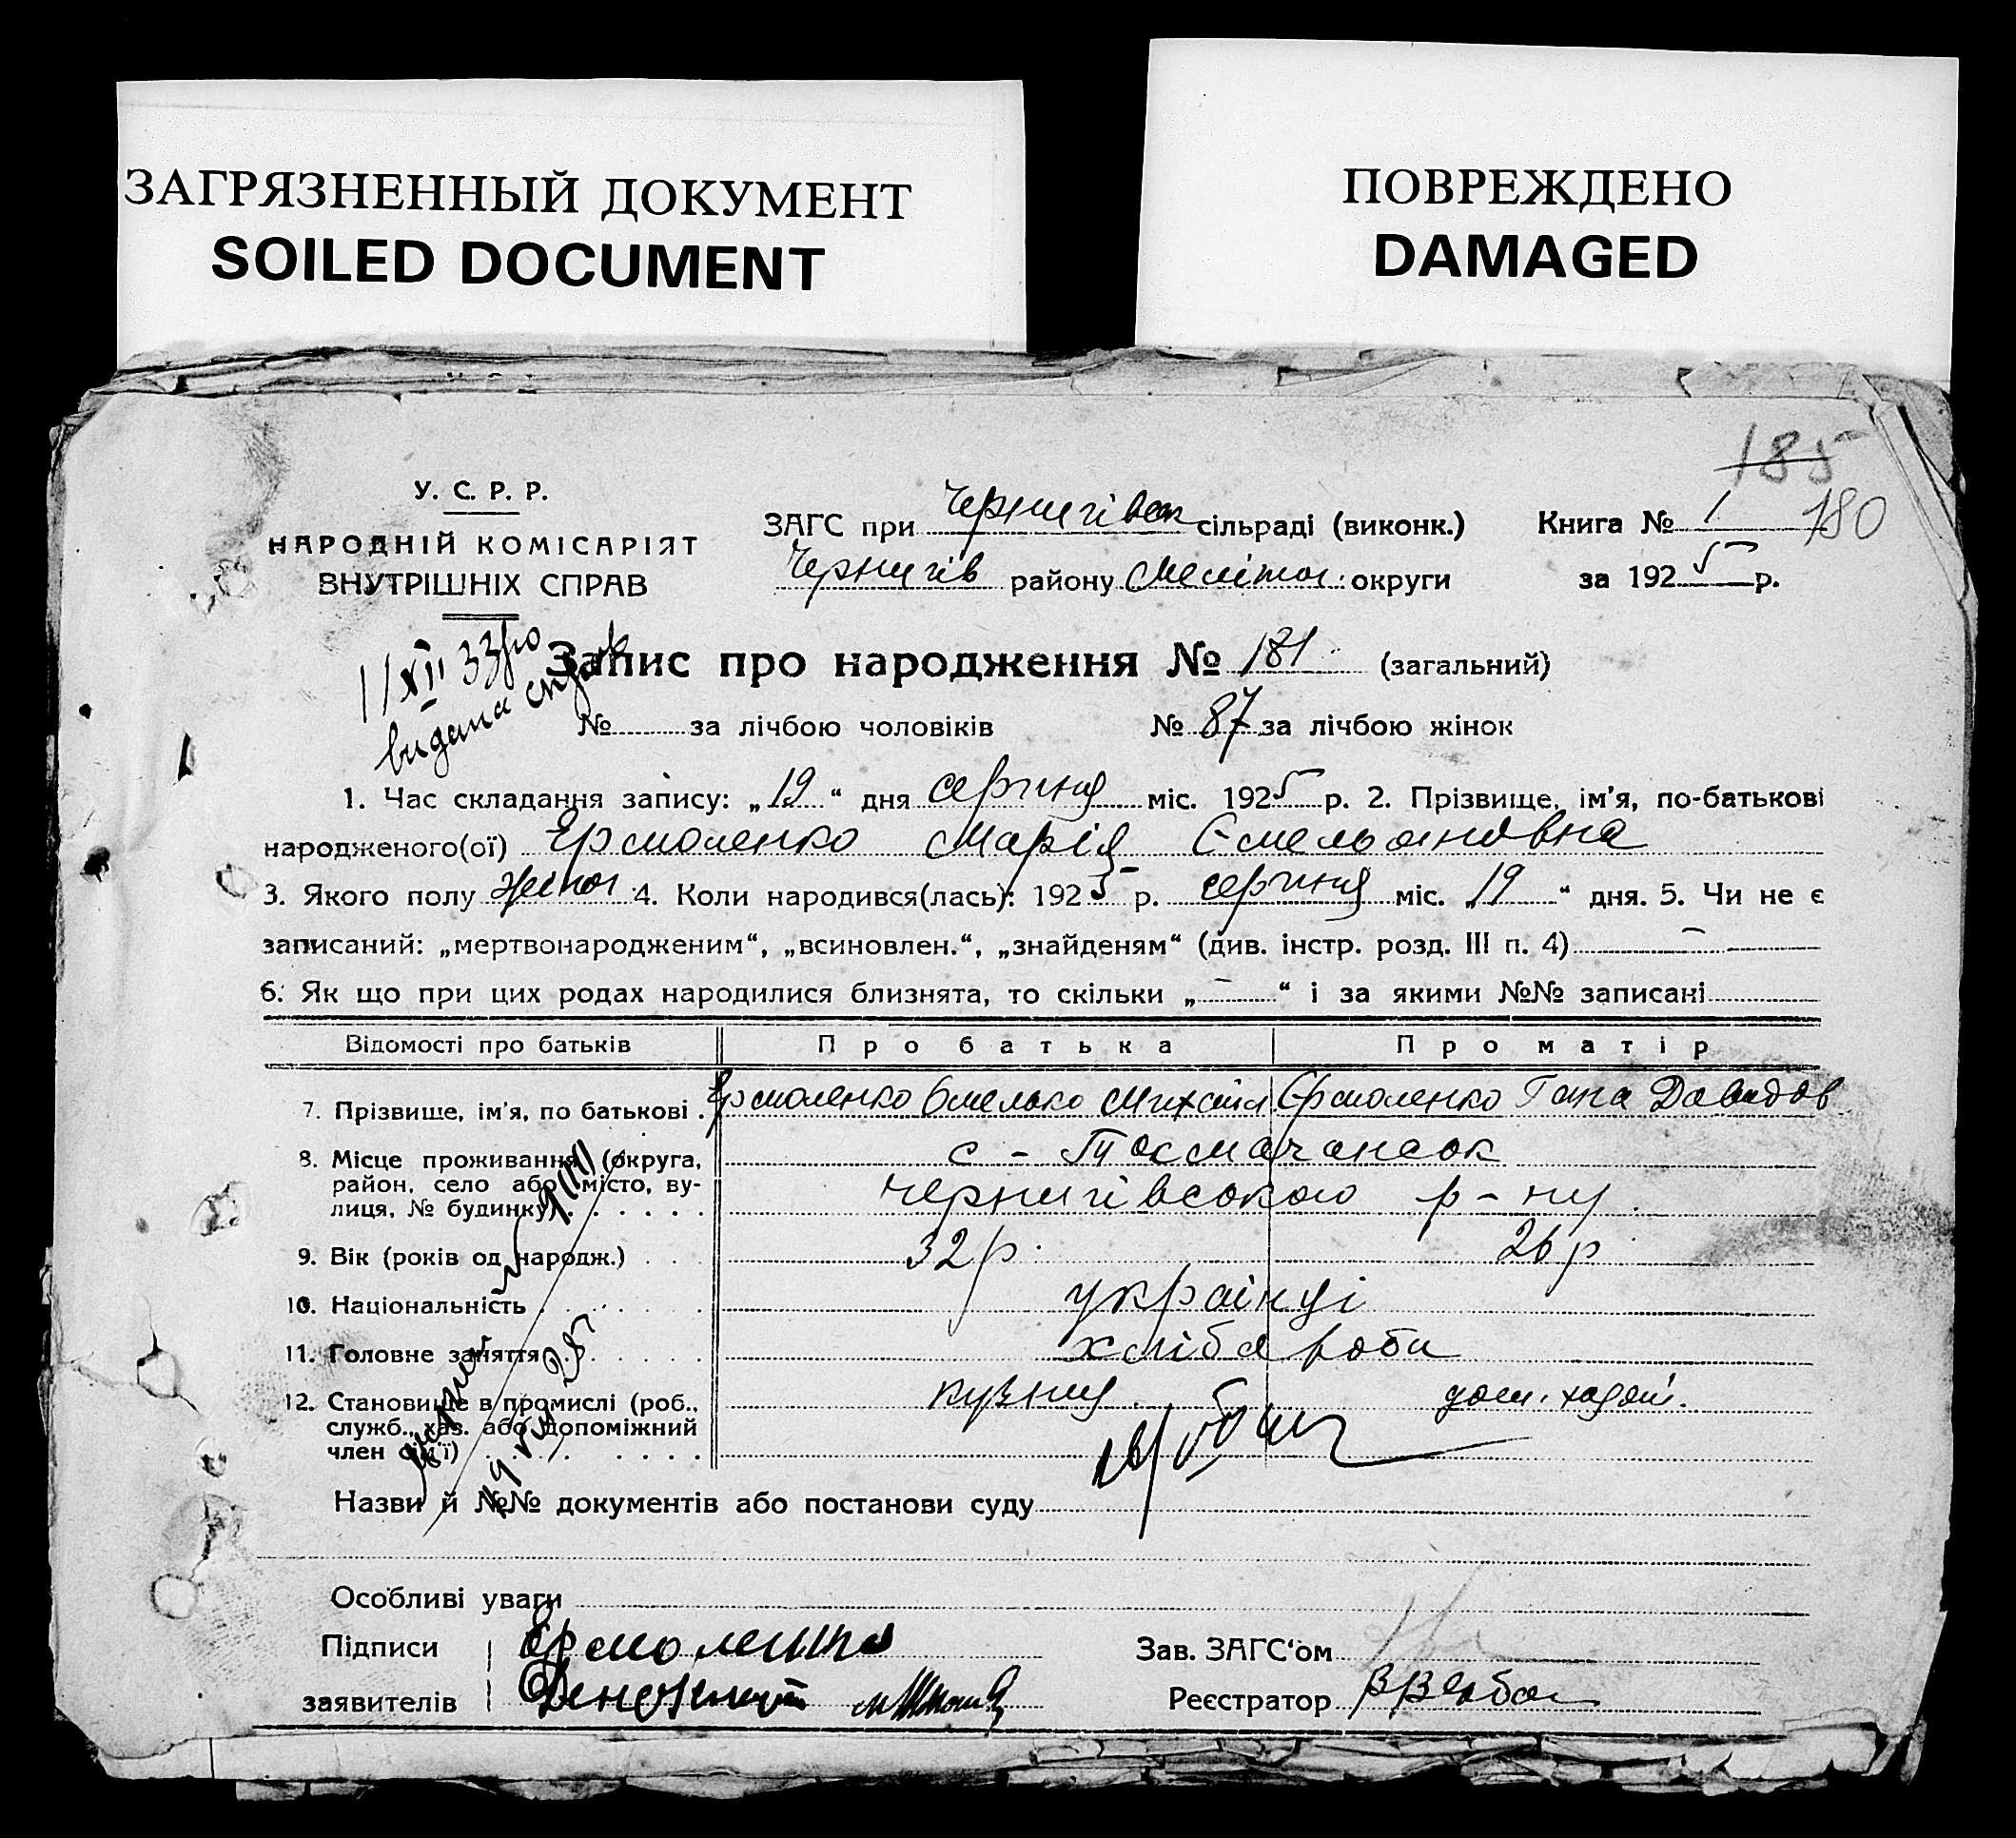 ЗАГРЯЗНЕННЫЙ ДОКУМЕНТ
SOILED DOCUMENT
ПОВРЕЖДЕНО
DAMAGED
185
180
У. С. Р. Р.
НАРОДНІЙ КОМІСАРІЯТ
ВНУТРІШНІХ СПРАВ
ЗАГС при Чернигівск сільраді (виконк.) Книга № 1
Чернигів району Мелітоп. округи за 1925 р.
11/XII 33 р
видана
Запис про народження № 181 (загальний)
№ за лічбою чоловіків № 87 за лічбою жінок
1. Час складання запису: „19“ дня серпня міс. 1925 р. 2. Прізвище, ім'я, по-батькові
народженого(ої) Ермоленко Марія Емельановна
3. Якого полу жіноч 4. Коли народився(лась): 1925 р. серпня міс. „19“ дня. 5. Чи не є
записаний: „мертвонародженим“, „всиновлен.“, „знайденям“ (див. інстр. розд. III п. 4) –
6. Як що при цих родах народилися близнята, то скільки „–“ і за якими №№ записані
Відомості про батьків Про батька Про матір
7. Прізвище, ім'я, по батькові . Ермоленко Омелько Михайл Ермоленко Гана Давидов
8. Місце проживання (округа, район, село або місто, вулиця, № будинку) с-
Чернигівського р-ну
9. Вік (років од народж.) 32 р. 26 р
10. Національність українці
11. Головне заняття хлібароби
12. Становище в промислі (роб.,
служб., хаз. або допоміжний
член сім'ї)
кузнец дом. хазяй.
Назви й №№ документів або постанови суду
Особливі уваги
Підписи Ермоленко Зав. ЗАГС'ом
заявителів Реєстратор